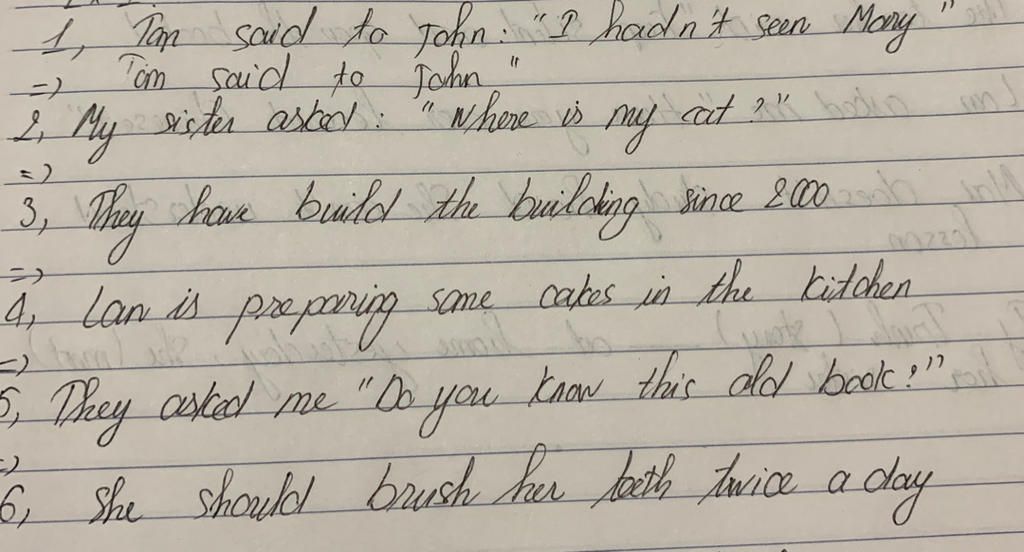 1, Tom said to John: "I hadn't seen Mary"
=) Tom said to John "
2, My sister asked: "Where is my cat?"
=)
3, They have build the building since 2000
=)
4, Lan is preparing some cakes in the kitchen
=)
5, They asked me "Do you know this old book?"
=)
6, She should brush her teeth twice a day